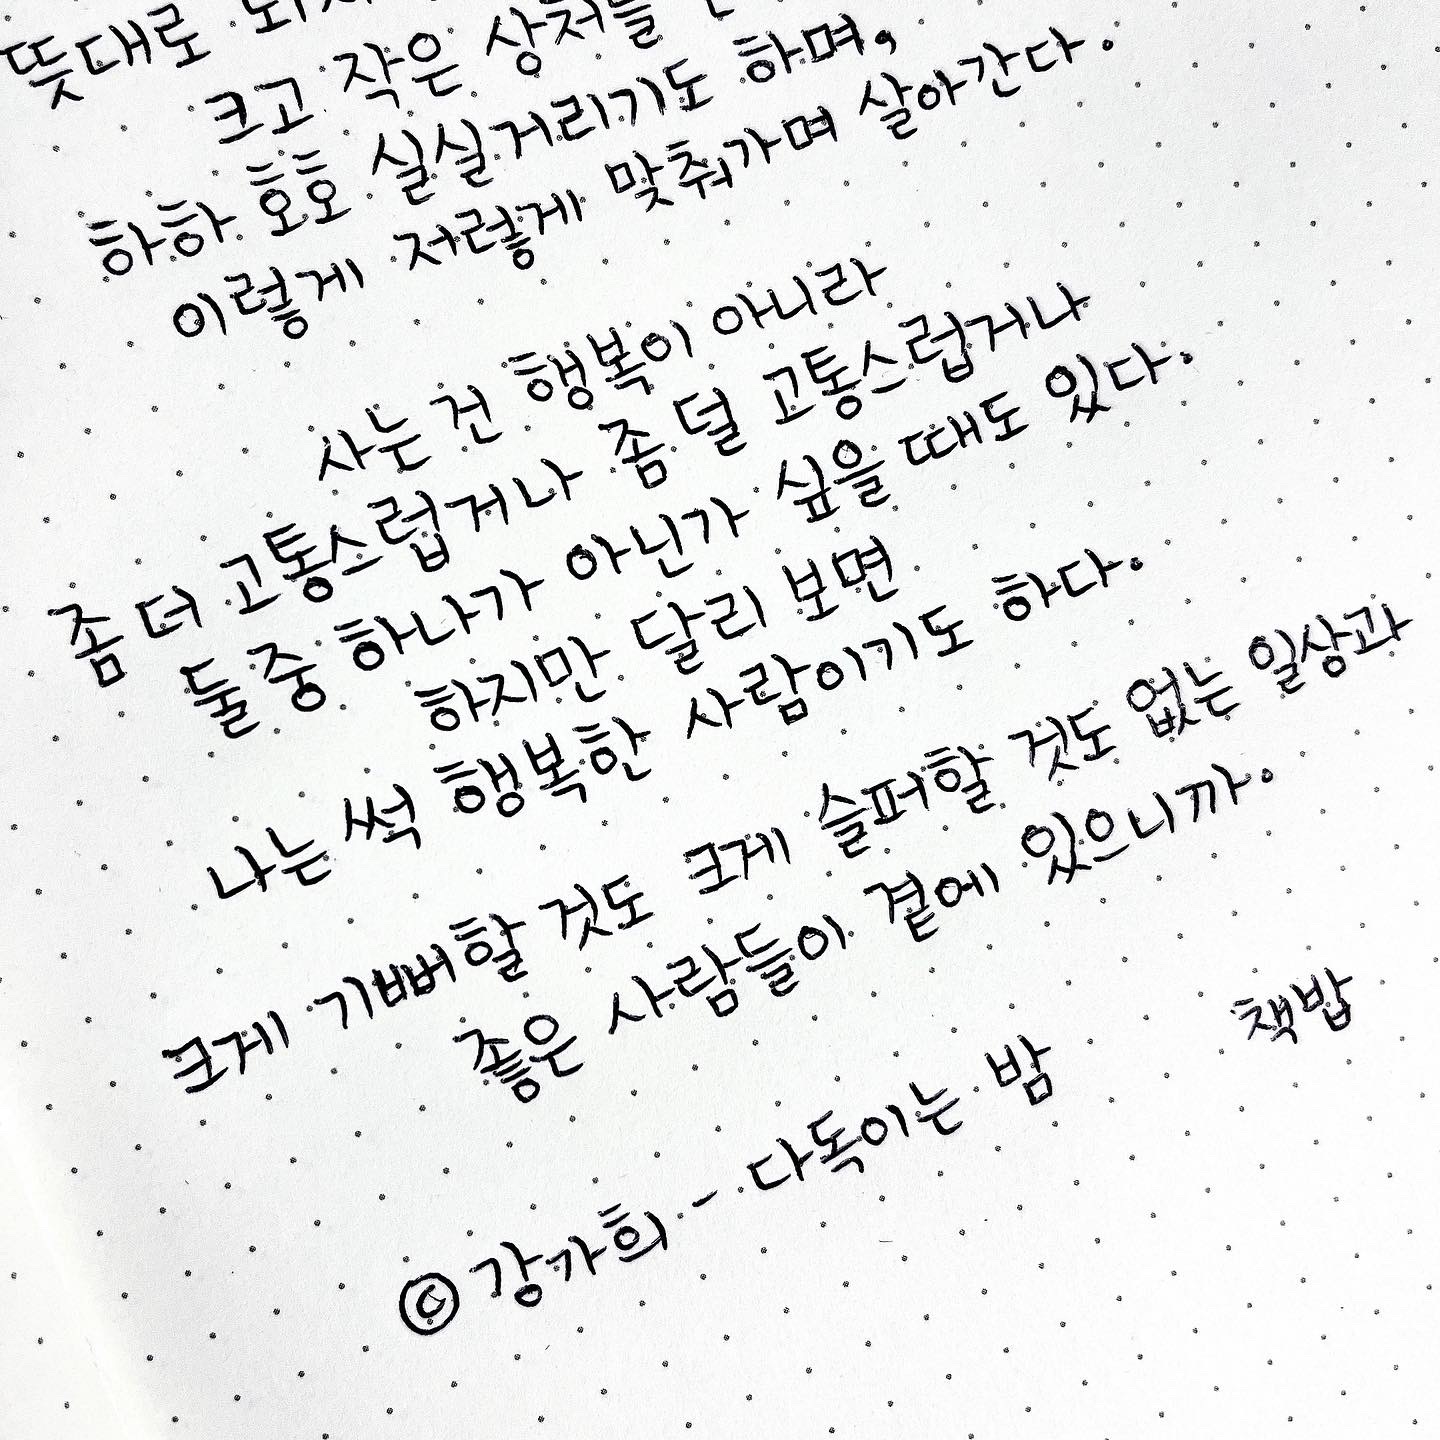 뜻대로
크고 작은 상처들
하하 호호 실실거리기도 하며,
이렇게 저렇게 맞춰가며 살아간다.
사는 건 행복이 아니라
좀 더 고통스럽거나 좀 덜 고통스럽거나
둘 중 하나가 아닌가 싶을 때도 있다.
하지만 달리 보면
나는 썩 행복한 사람이기도 하다.
크게 기뻐할 것도 크게 슬퍼할 것도 없는 일상과
좋은 사람들이 곁에 있으니까.
ⓒ 강가희 - 다독이는 밤 책밥